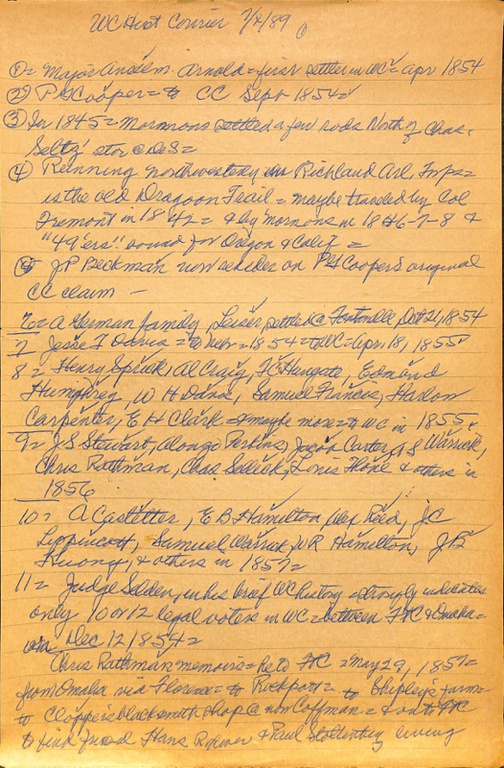 WC Hist Courier 7/4/89
1 = Major Anselm Arnold = first settler in WC = Apr 1854
2) P G Cooper = to CC Sept 1854 =
3 In 1845 = Mormons settled a few rods North of Chas.
Seltz' store @ DeS =
4 Running northwesterly in Richland Arl. Twps =
is the old Dragoon Trail = maybe traveled by Col
Fremont in 1842 = & by Mormons in 1846-7-8 &
"49'ers" bound for Oregon & Calif =
J P Beckman now resides on P G Cooper's original
CC claim —
= A German family, settled Fontenelle, Oct 21, 1854
7 Jesse T Davis = to Nebr = 1854 = to WC = Apr, 18, 1855
8 = Henry Sprick, Al Craig, F C Hungate, Edmond
Humphrey, W H Davis, Samuel Francis, Harlow
Carpenter, E H Clark & maybe more = to WC in 1855
9 = J S Stewart, Alonzo Perkins, Jacob Carter, A S Warrick,
Chris Rathman, Chas Selleck, & others in
1856
10 = A Castetter, E B Hamilton, Alex Reed, J C
Lippincott, Samuel Warrick, W R Hamilton, J B
Kuony, & others in 1857 =
11 = Judge Selden, in his brief WC history strongly indicates
only 10 or 12 legal voters in WC = between FtC & Omaha =
on Dec 12 1854 =
Chris Rathman memoirs = he to FtC = May 29, 1857 =
from Omaha via Florence = to Rockport = to Shipley's farm =
to Clopper's blacksmith shop @ now Coffman = & on to FtC
to find friend Hans & Paul Stoltenberg living